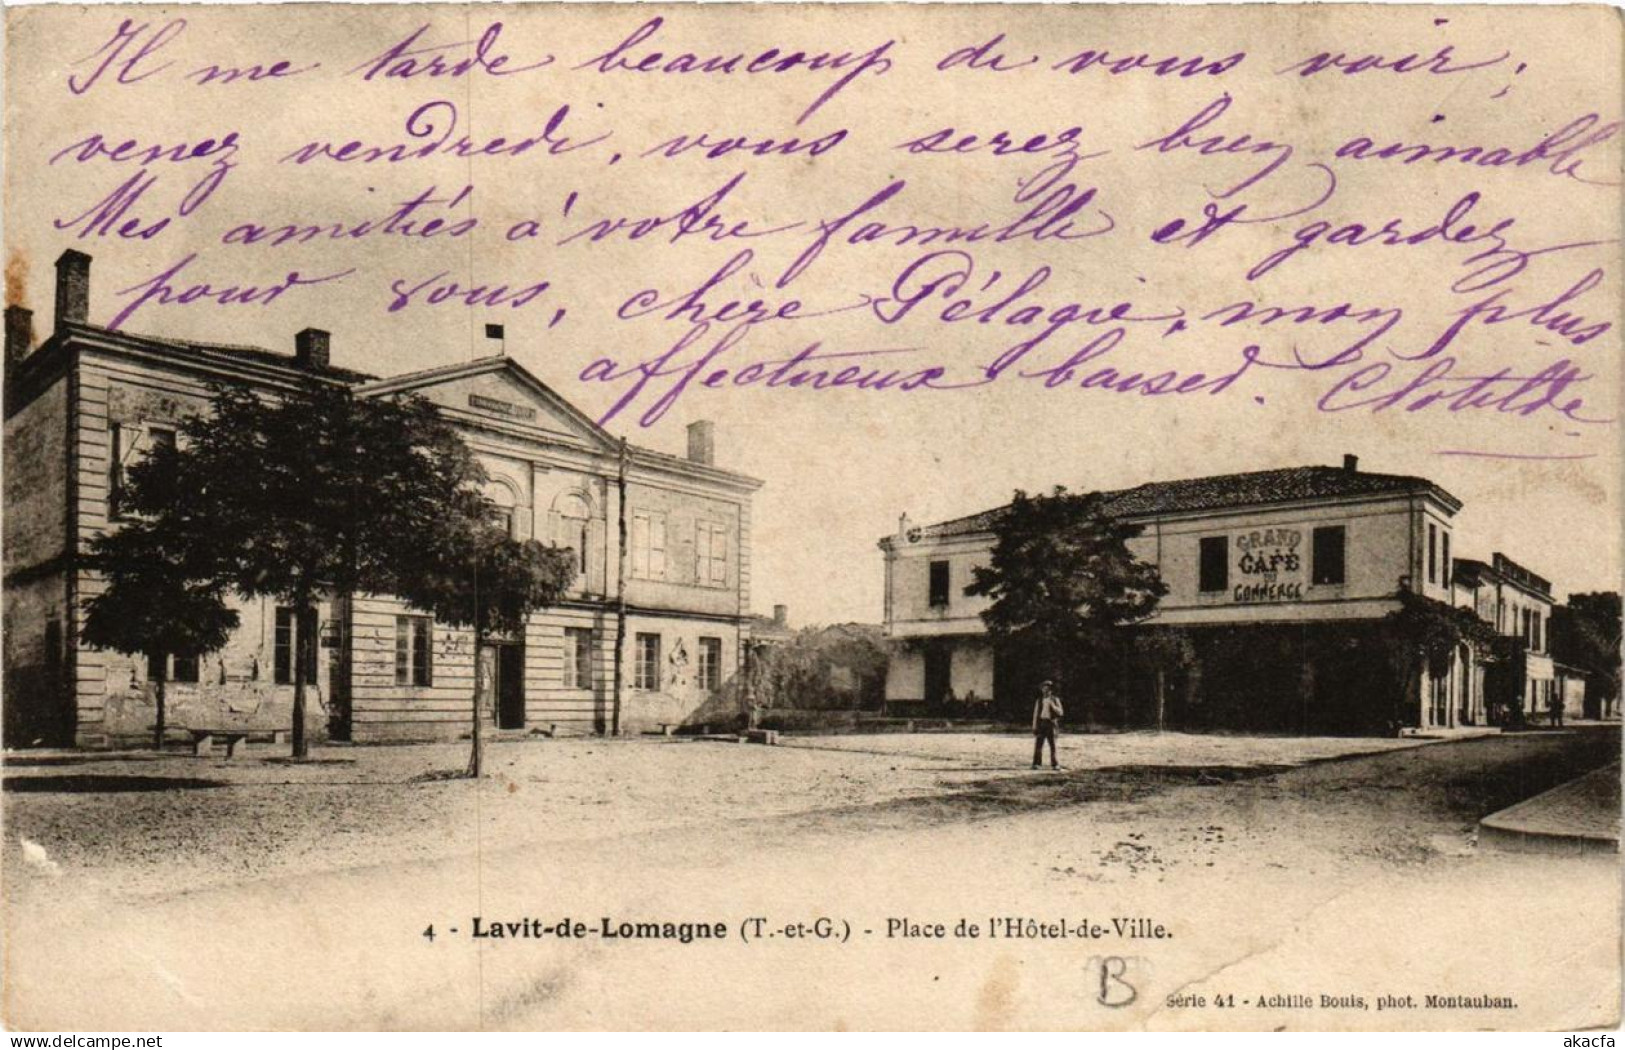 Il me tarde beaucoup de vous voir ;
venez vendredi, vous serez bien aimable
Mes amitiés à votre famille et gardez
pour vous, chère Pélagie, mon plus
affectueux baiser. Clotilde
GRAND
CAFÉ
DU
COMMERCE
4 - Lavit-de-Lomagne (T.-et-G.) - Place de l'Hôtel-de-Ville.
B
Série 41 - Achille Bouis, phot. Montauban.
akacfa